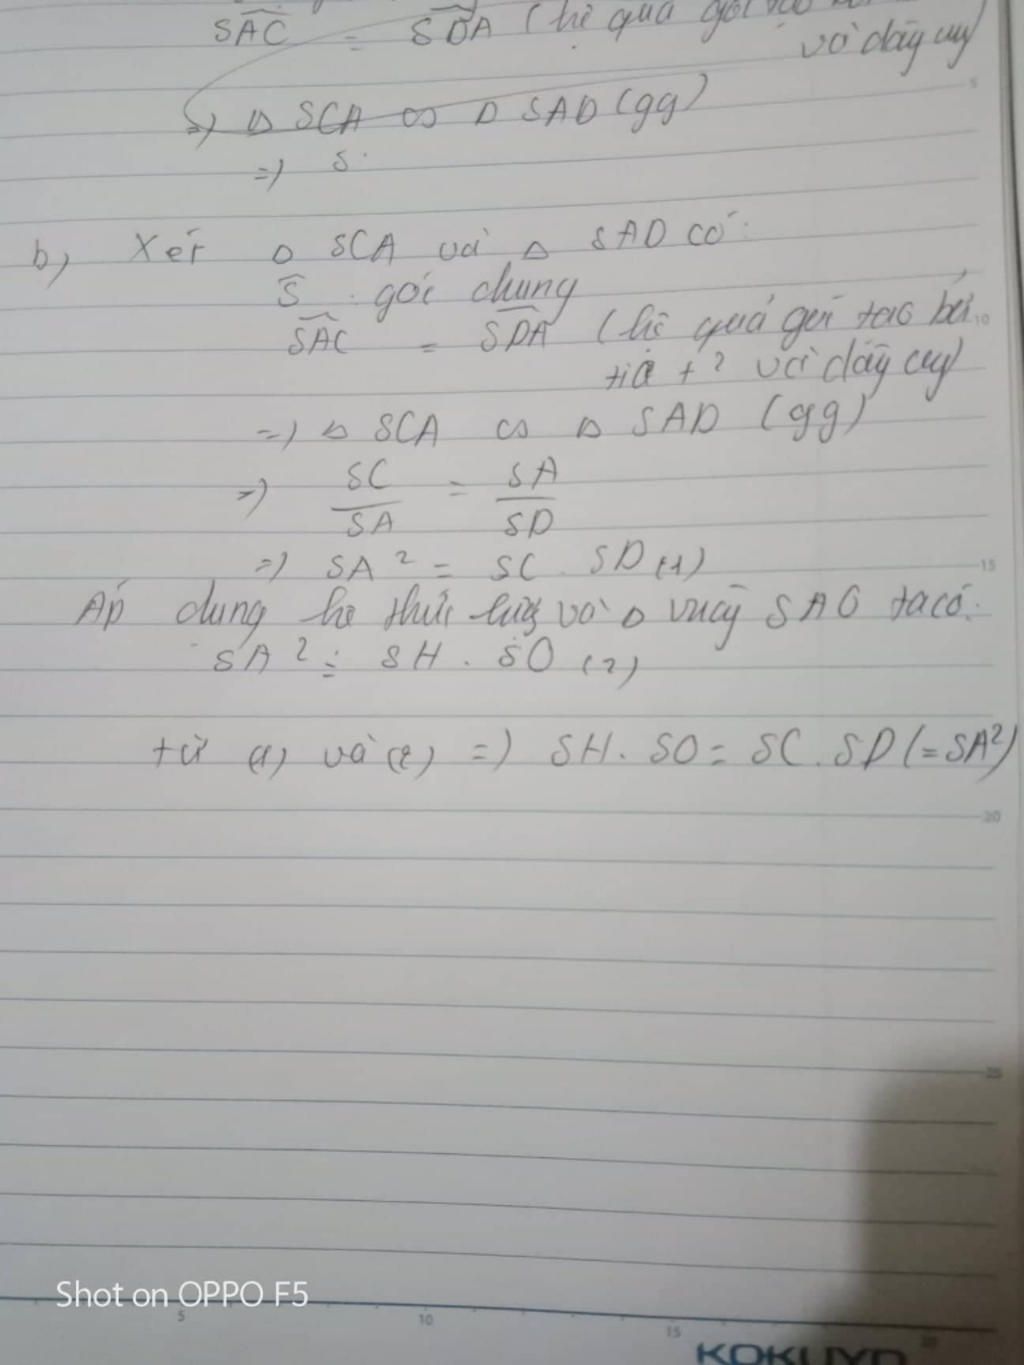 SAC = SDA (hệ quả góc
với dây cung
=) Δ SCA ∽ Δ SAD (gg)
=) S.
b) Xét Δ SCA và Δ SAD có:
S góc chung
SAC = SDA (hệ quả góc tạo bởi
tia t² với dây cung
=) Δ SCA ∽ Δ SAD (gg)
=) SC/SA = SA/SD
=) SA² = SC . SD (1)
Áp dung hệ thức lượng vào Δ vuông SAO ta có:
SA² = SH . SO (2)
từ (1) và (2) =) SH. SO = SC. SD (=SA²)
5
10
15
20
25
Shot on OPPO F5
5
10
15
20
KOKUYO